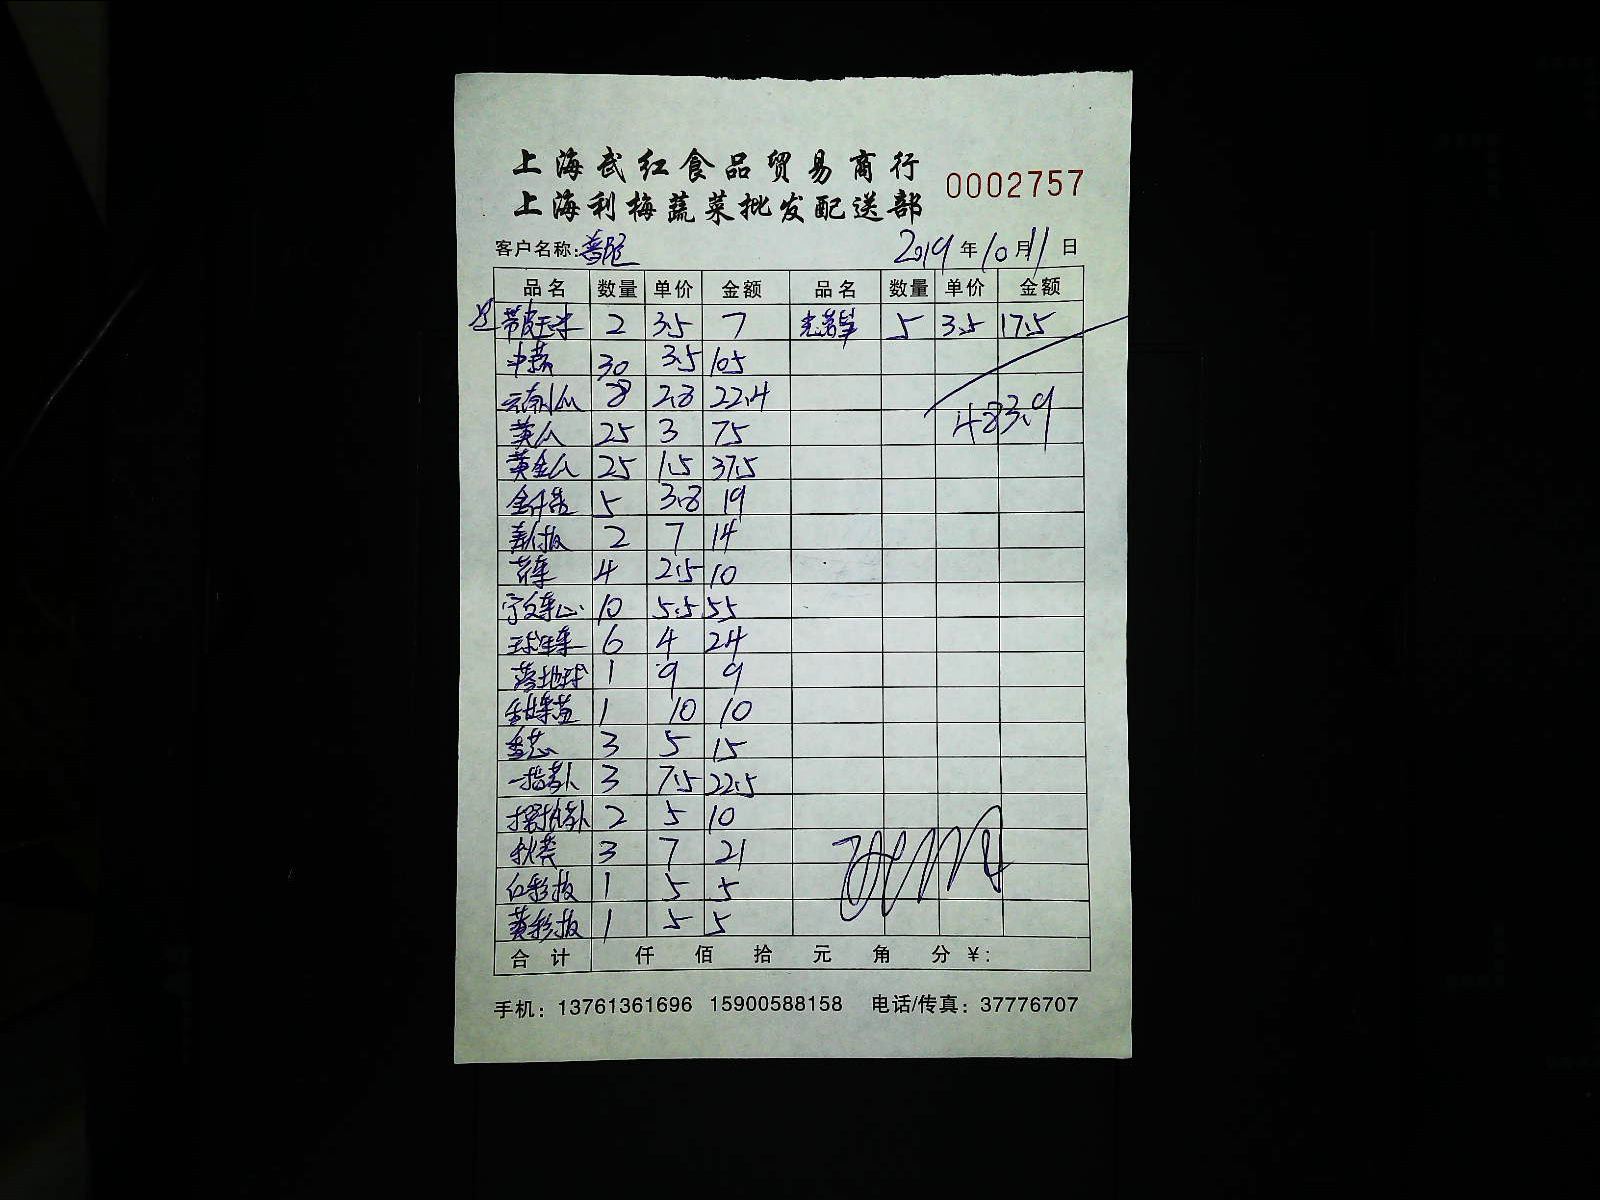 上海武红食品贸易商行
上海利梅蔬菜批发配送部
0002757
客户名称：普陀 2019年10月11日
品名 数量 单价 金额 品名 数量 单价 金额
带皮玉米 2 3.5 7 5 3.5 17.5
30 3.5 105
云南小瓜 8 2.8 22.4
483.9
黄瓜 25 3 75
黄金瓜 25 1.5 37.5
5 3.8 19
2 7 14
4 2.5 10
10 5.5 55
球生菜 6 4 24
1 9 9
1 10 10
3 5 15
3 7.5 22.5
2 5 10
秋葵 3 7 21
红彩椒 1 5 5
黄彩椒 1 5 5
合计 仟 佰 拾 元 角 分 ¥：
手机：13761361696 15900588158 电话/传真：37776707